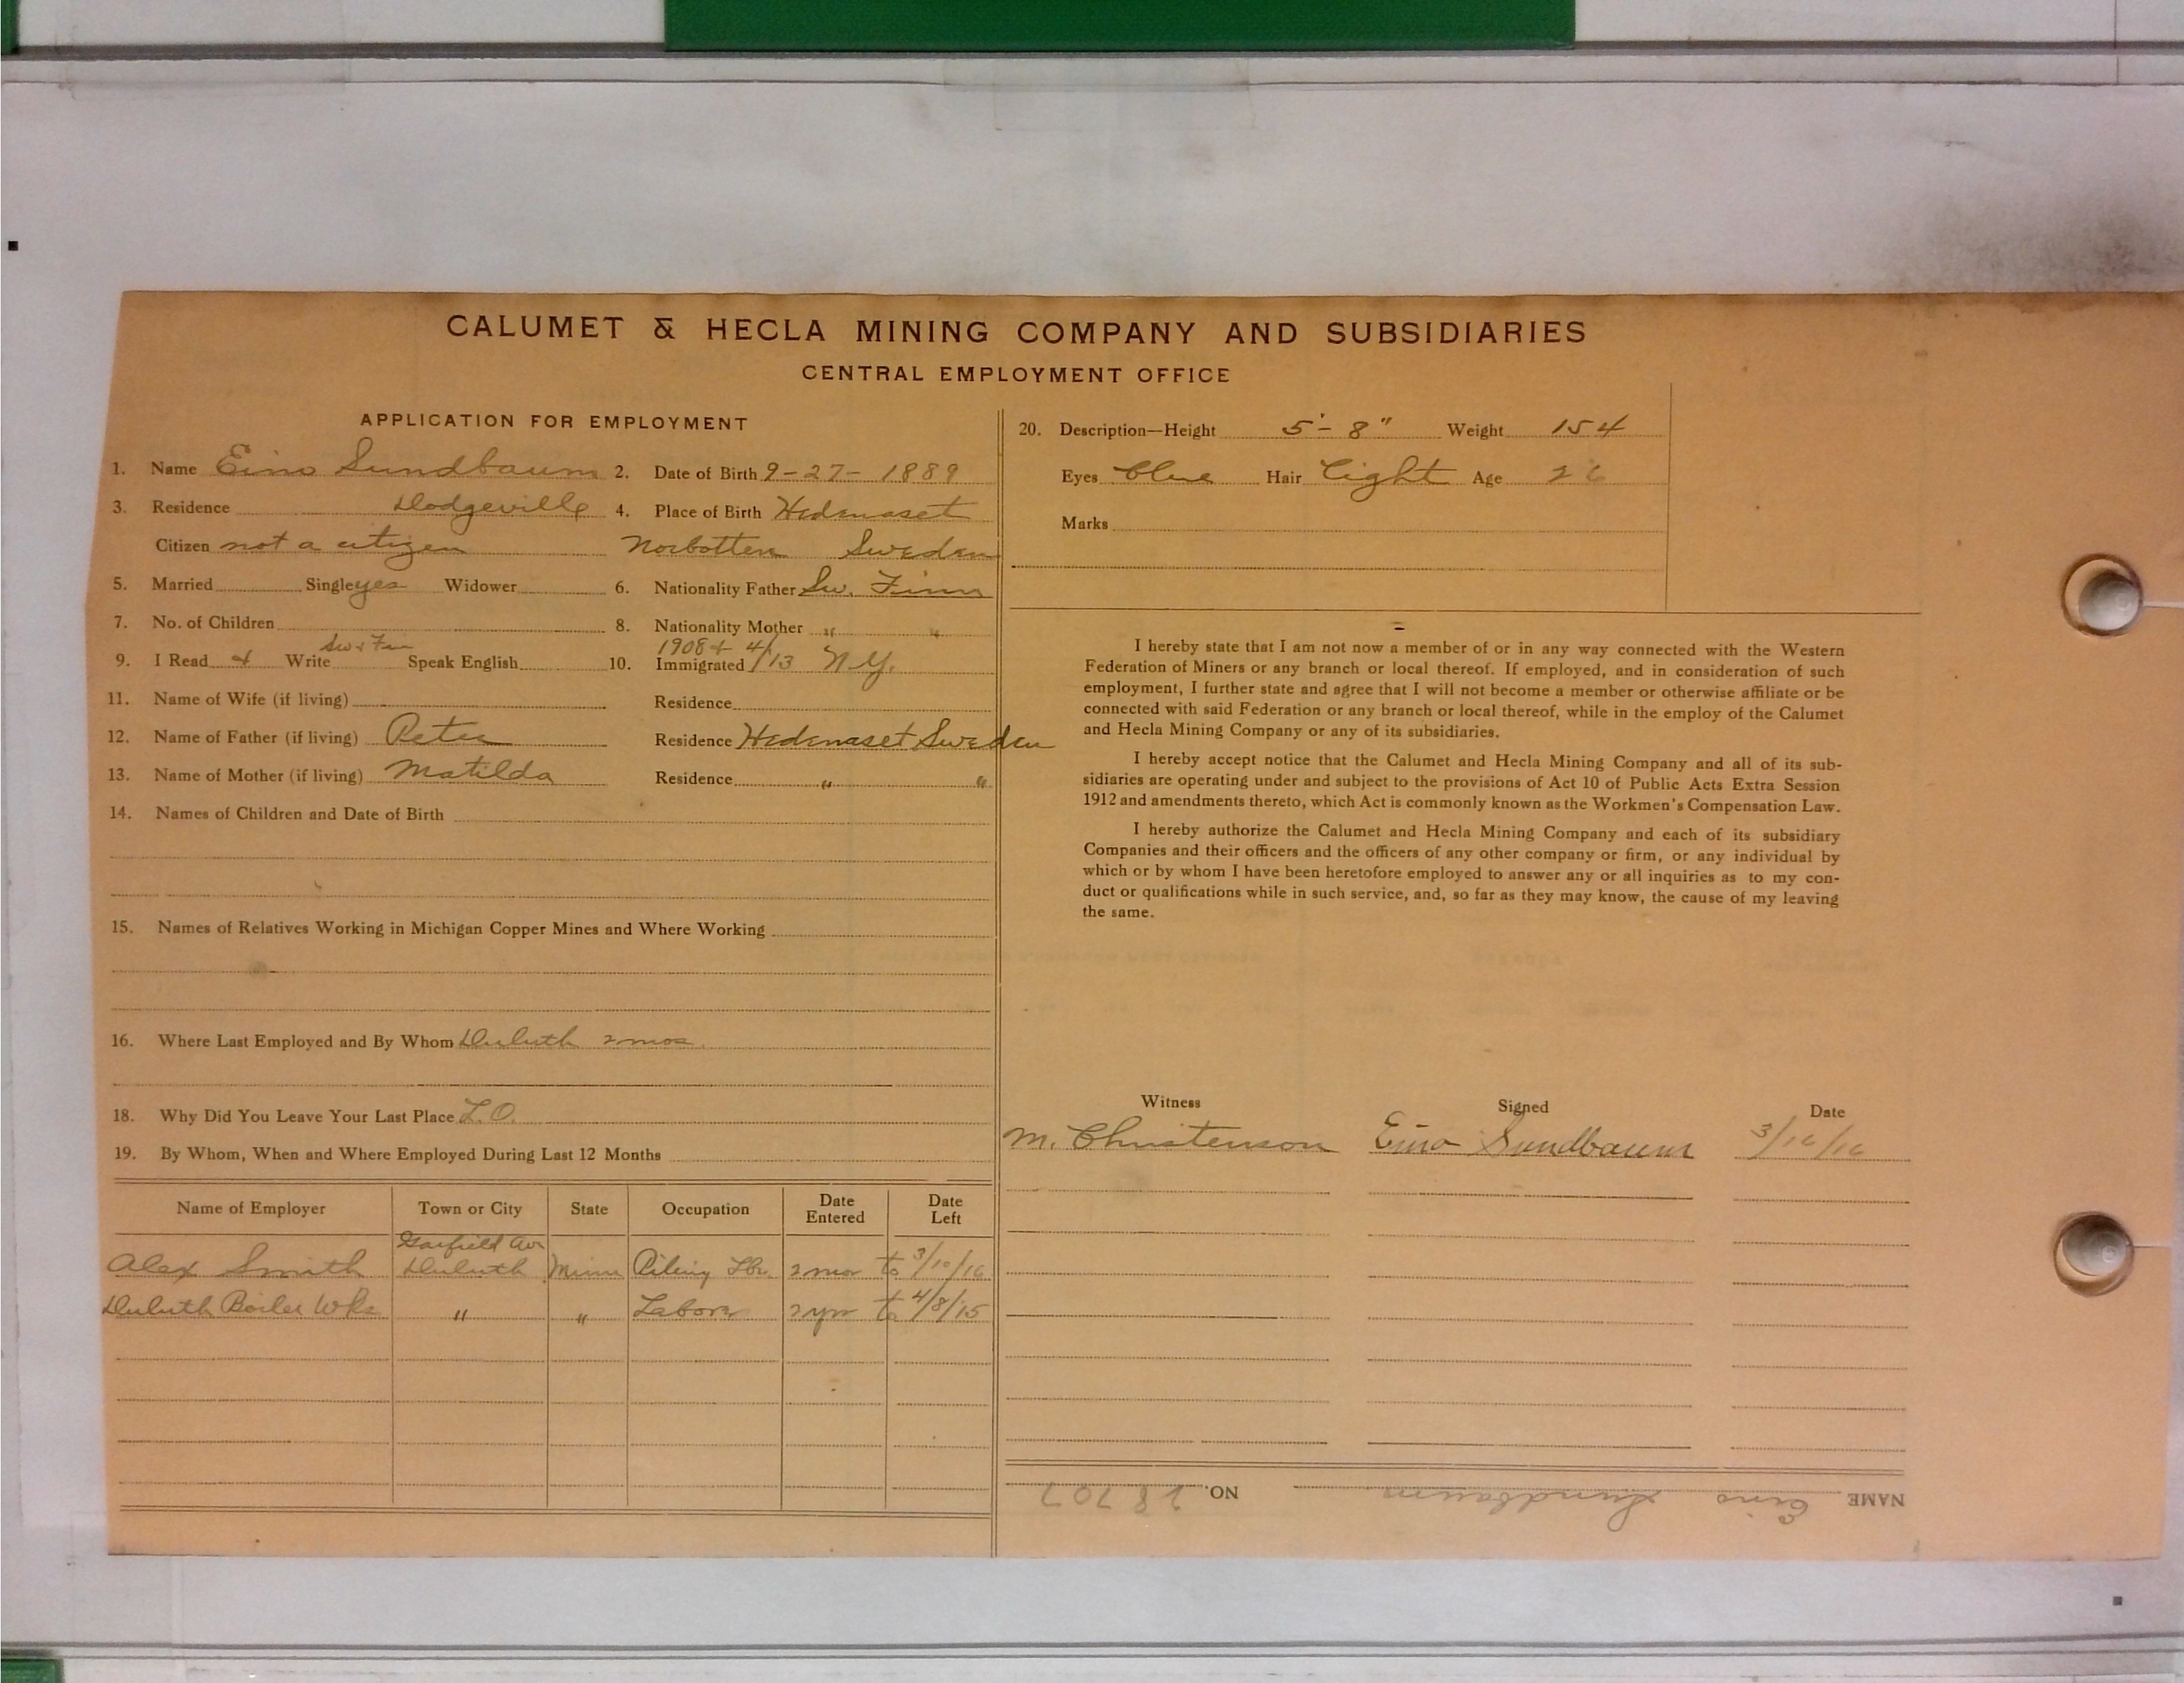 CALUMET & HECLA MINING COMPANY AND SUBSIDIARIES
CENTRAL EMPLOYMENT OFFICE
APPLICATION FOR EMPLOYMENT
1. Name Eino Sundbaum 2. Date of Birth 9-27-1889
3. Residence Dodgeville 4. Place of Birth Hedenaset
Citizen not a citizen Norbotten Sweden
5. Married Single yes Widower 6. Nationality Father Sw. Finn
7. No. of Children 8. Nationality Mother " "
Sw & Fin 1908 & 4/
9. I Read & Write Speak English 10. Immigrated /13 N.Y.
11. Name of Wife (if living) Residence
12. Name of Father (if living) Peter Residence Hedenaset Sweden
13. Name of Mother (if living) Matilda Residence " "
14. Names of Children and Date of Birth
15. Names of Relatives Working in Michigan Copper Mines and Where Working
16. Where Last Employed and By Whom Duluth 2 mos.
18. Why Did You Leave Your Last Place L.O.
19. By Whom, When and Where Employed During Last 12 Months
Name of Employer Town or City State Occupation Date Entered Date Left
Garfield Av
Alex Smith Duluth Minn Piling Lbr. 2 mos to 3/10/16
Duluth Boiler Wks " " Labor 2 yrs to 4/8/15
20. Description—Height 5'-8" Weight 154
Eyes blue Hair Light Age 26
Marks
I hereby state that I am not now a member of or in any way connected with the Western
Federation of Miners or any branch or local thereof. If employed, and in consideration of such
employment, I further state and agree that I will not become a member or otherwise affiliate or be
connected with said Federation or any branch or local thereof, while in the employ of the Calumet
and Hecla Mining Company or any of its subsidiaries.
I hereby accept notice that the Calumet and Hecla Mining Company and all of its sub-
sidiaries are operating under and subject to the provisions of Act 10 of Public Acts Extra Session
1912 and amendments thereto, which Act is commonly known as the Workmen's Compensation Law.
I hereby authorize the Calumet and Hecla Mining Company and each of its subsidiary
Companies and their officers and the officers of any other company or firm, or any individual by
which or by whom I have been heretofore employed to answer any or all inquiries as to my con-
duct or qualifications while in such service, and, so far as they may know, the cause of my leaving
the same.
Witness Signed Date
M. Christenson Eino Sundbaum 3/16/16
NAME Eino Sundbaum NO. 28707